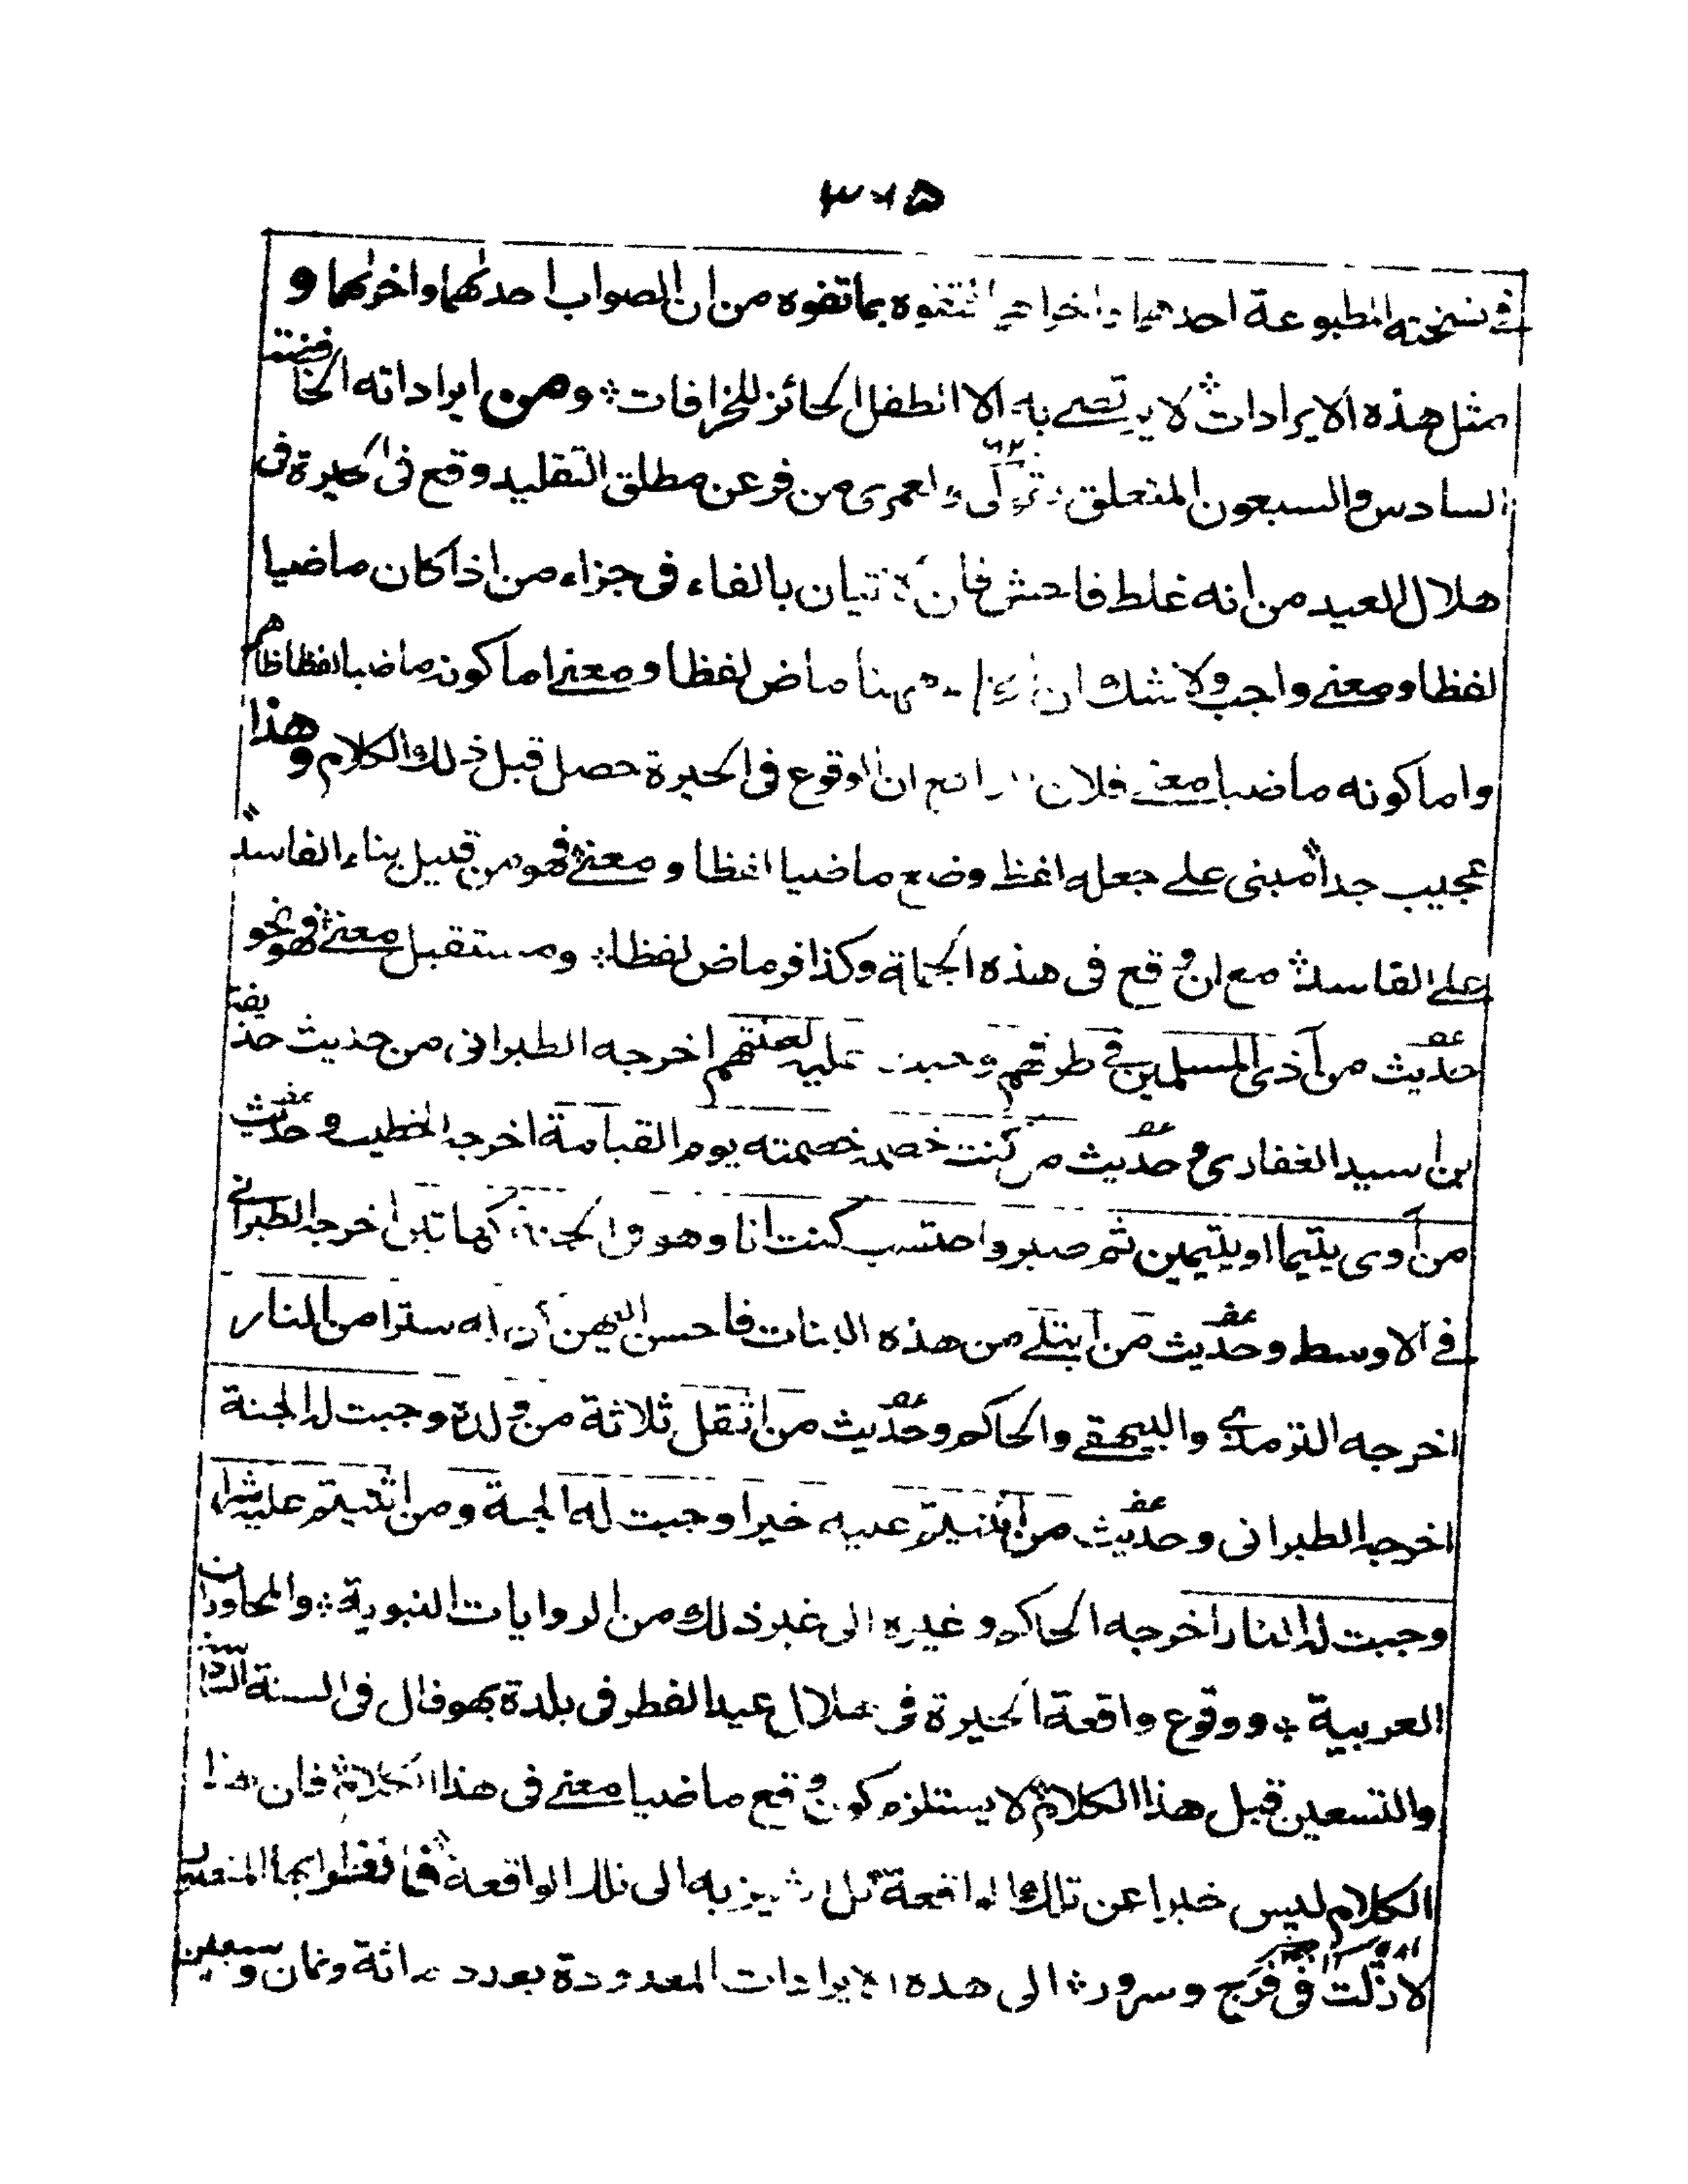 ٣٠٥
في نسخته المطبوعة احدهما واخراهما لتفوه بما تفوه من ان الصواب احدٰهما واخرٰهما و
مثل هذه الايرادات لا يرتضے به الا الطفل الحائز للخرافات ومن ايراداته الخافتة
السادس والسبعون المتعلق بقولى ولعمرى من فر عن مطلق التقليد وقع فى الحيرة فى
هلال العيد من انه غلط فاحش فان الاتيان بالفاء فى جزاء من اذا كان ماضيا
لفظا ومعنے واجب ولا شك ان الجزاء ههنا ماض لفظا ومعنے اما كونه ماضيا لفظا ظاهر
واما كونه ماضيا معنے فلان الواقع ان الوقوع فى الحيرة حصل قبل ذلك الكلام وهذا
عجيب جدا مبنى علے جعله لفظ وضع ماضيا لفظا ومعنے فهو من قبيل بناء الفاسد
علے الفاسد مع ان وقع فى هذه الجملة وكذا فر ماض لفظا ومستقبل معنے فهو نحو
حديث من آذى المسلمين في طرقهم وجبت عليه لعنتهم اخرجه الطبرانى من حديث حذيفة
بن اسيد الغفارى وحديث من كنت خصمه خصمته يوم القيامة اخرجه الخطيب وحديث
من آوى يتيما او يتيمين ثم صبر واحتسب كنت انا وهو فى الجنة كهاتين اخرجه الطبرانے
فے الاوسط وحديث من ابتلے من هذه البنات فاحسن اليهن كن له سترا من النار
اخرجه الترمذے والبيهقے والحاكم وحديث من اثقل ثلاثة من ولده وجبت له الجنة
اخرجه الطبرانى وحديث من اثنيتم عليه خيرا وجبت له الجنة ومن اثنيتم عليه شرا
وجبت له النار اخرجه الحاكم وغيره الى غير ذلك من الروايات النبوية والمحاورات
العربية ووقوع واقعة الحيرة فى هلال عيد الفطر فى بلدة بهوفال فى السنة السادسة
والتسعين قبل هذا الكلام لا يستلزم كون وقع ماضيا معنے فى هذا الكلام فان هذا
الكلام ليس خبرا عن تلك الواقعة بل اشير به الى تلك الواقعة فانظروا ايها المنصف
لا زلت فى فرح وسرور الى هذه الايرادات المعدودة بعدد مائة وثمان وسبعين